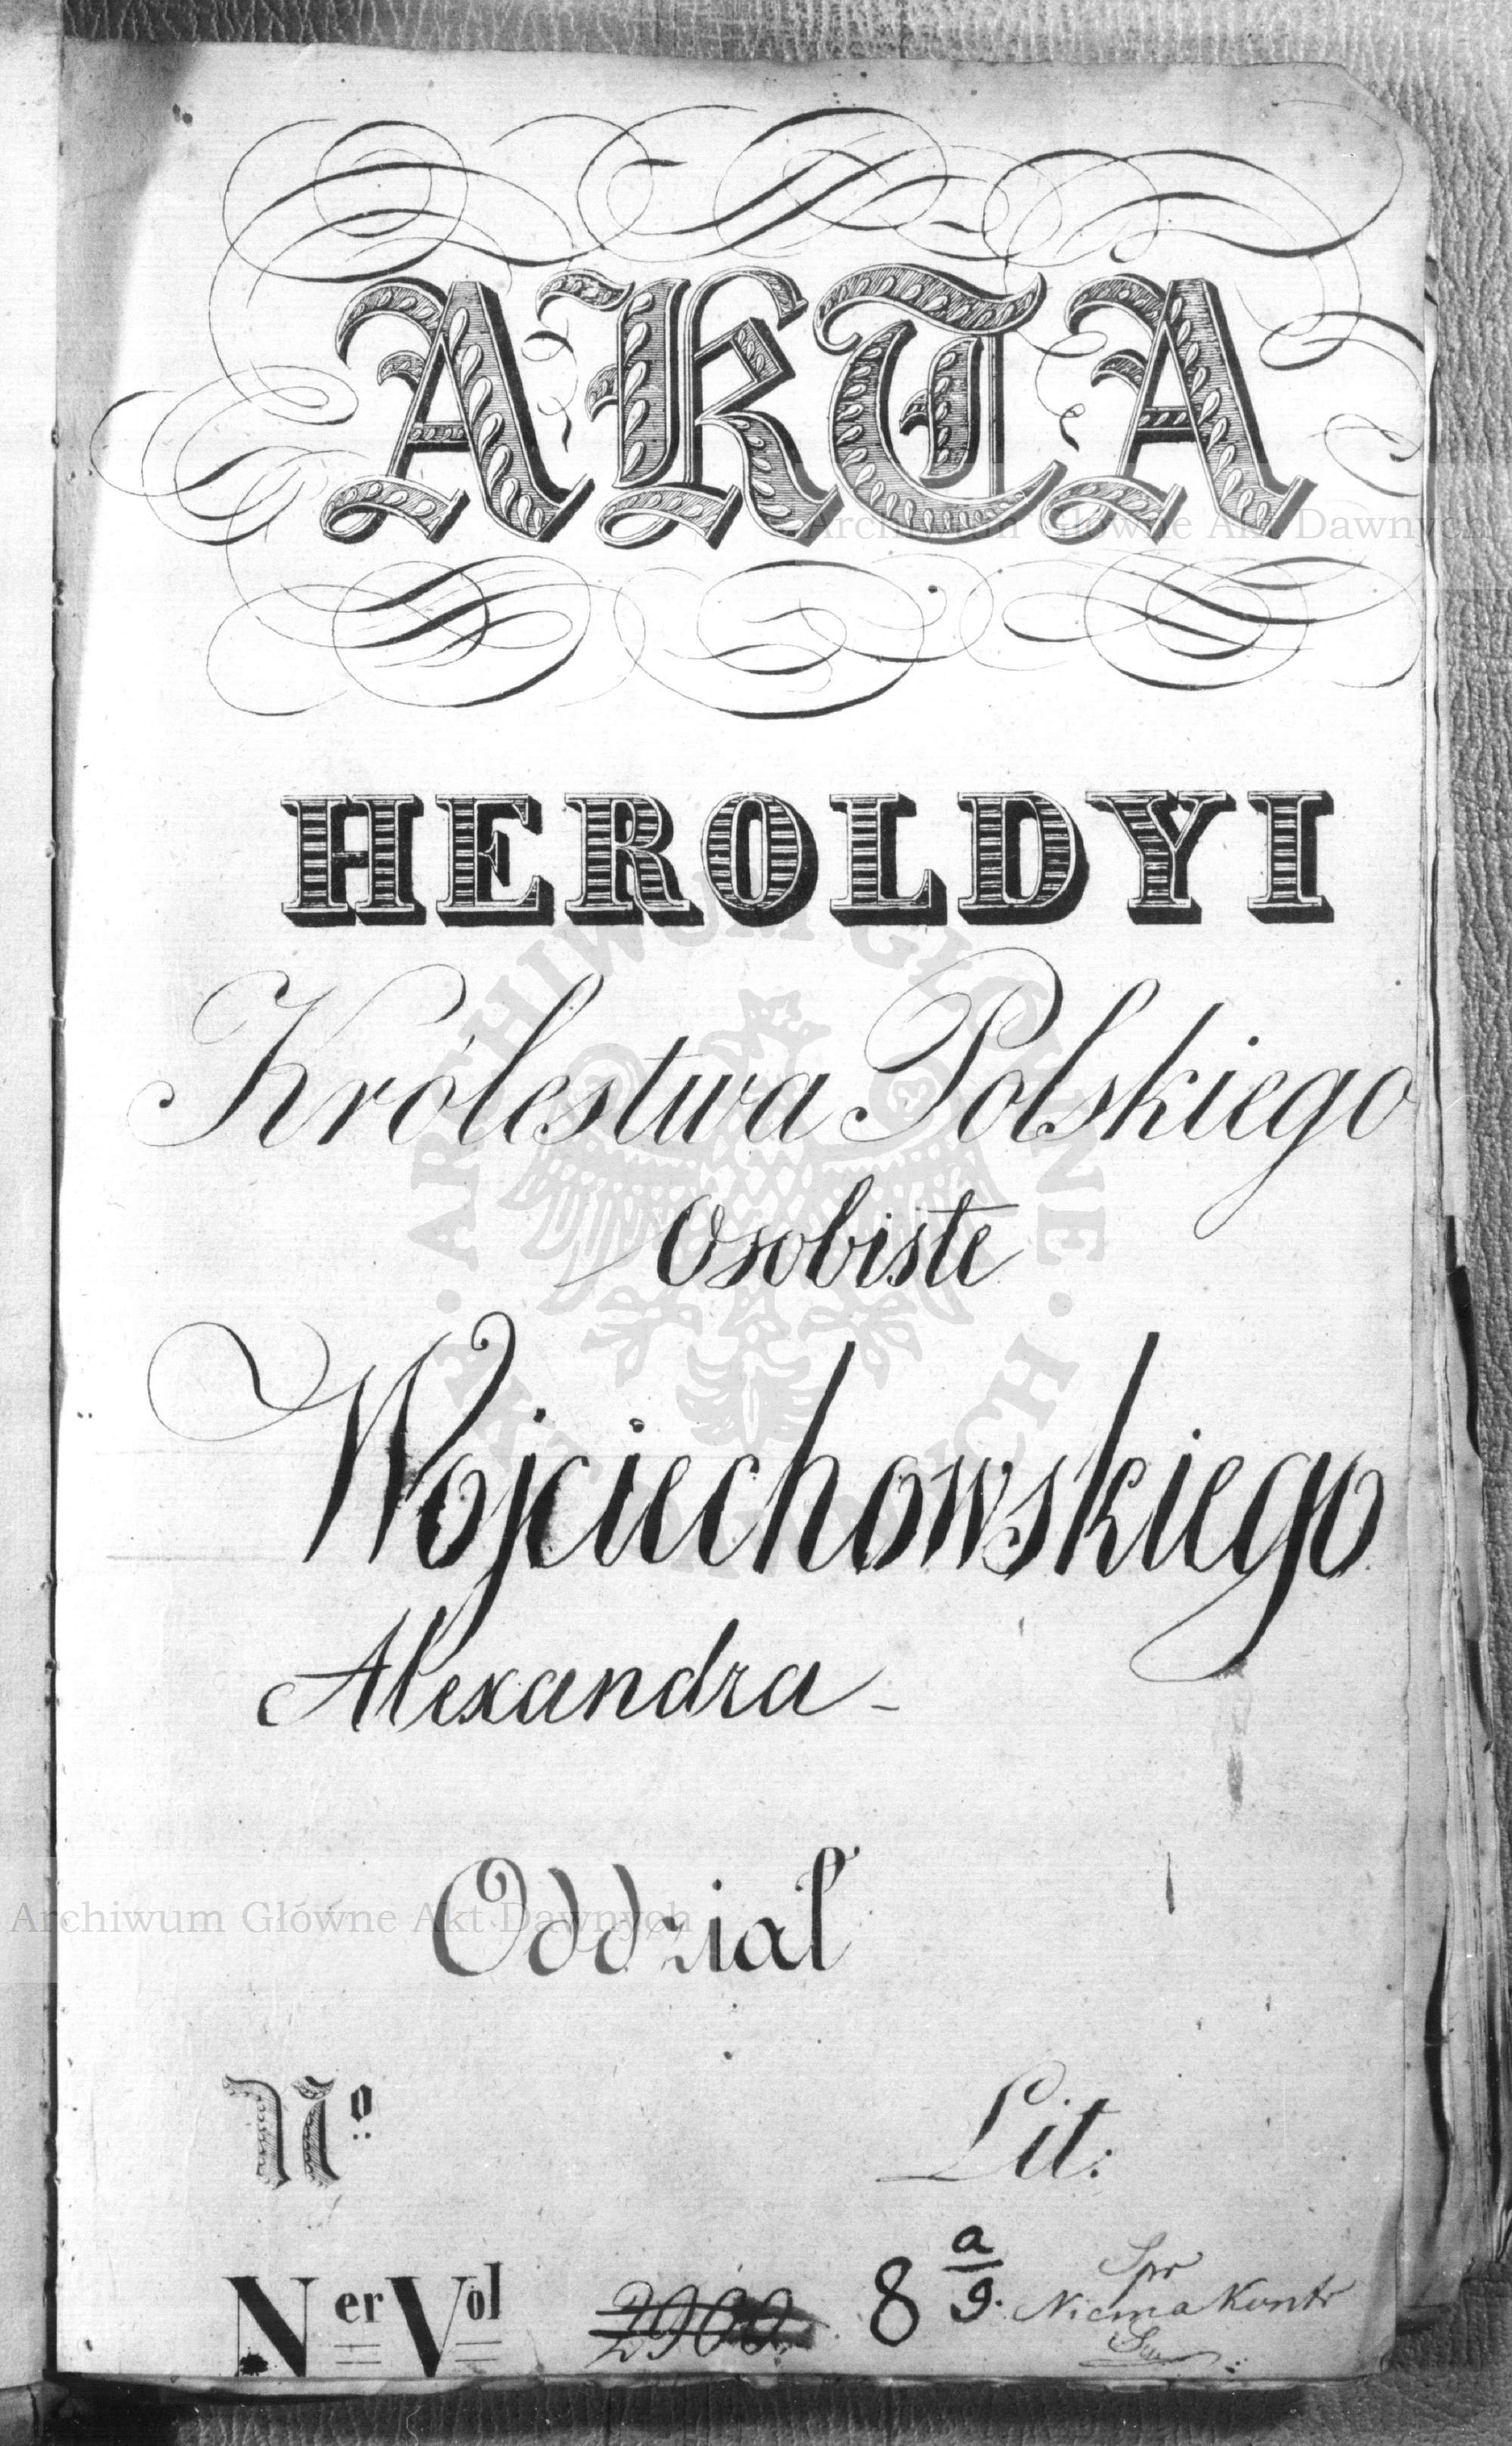 AKTA
HEROLDYI
Królestwa Polskiego
Osobiste
Wojciechowskiego
Alexandra -
Oddział
Nº
Lit:
Ner Vol 2900 8 a/9. Spr
Niema Kontr
Archiwum Główne Akt Dawnych
Archiwum Główne Akt Dawnych
ARCHIWUM GŁÓWNE AKT DAWNYCH